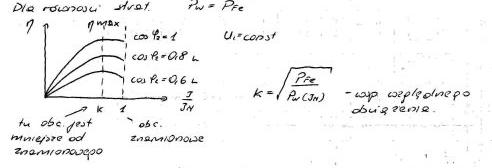 Dla równości strat. Pw = PFe
η
η max
cos φ2 = 1
U1 = const
cos φ2 = 0,8 L
cos φ2 = 0,6 L
J/JN
k 1
k = √(PFe / Pw(JN)) - wsp względnego obciążenia.
tu obc. jest mniejsze od znamionowego
obc. znamionowe